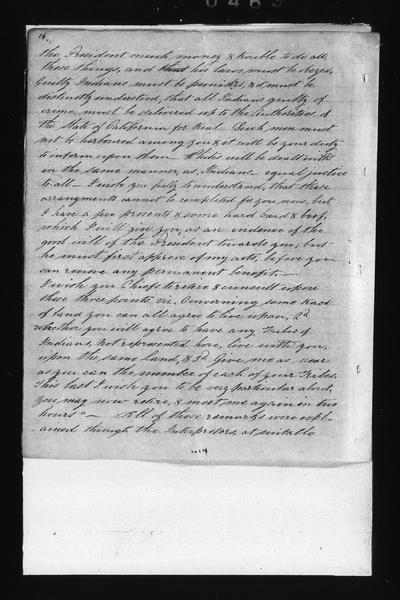 0463
14.
the President much money & trouble to do all
these things, and that his laws must be obeyed,
Guilty Indians must be punished, & it must be
distinctly understood, that all Indians guilty of
crime must be delivered up to the Authorities of
the State of California for trial. Such men must
not be harboured among you & it will be your duty
to inform upon them — Whites will be dealt with
in the same manner, as Indians — equal justice
to all — I wish you fully to understand, that these
arrangments cannot be completed for you now, but
I have a few presents & some hard bread & beef,
which I will give you, as an evidence of the
good will of the President towards you; but
he must first approve of my acts, before you
can receive any permanent benefit. —
I wish you Chiefs to retire & consult upon
these three points, viz. Concerning some tract
of land you can all agree to live upon, 2d
whether you will agree to have any Tribes of
Indians, not represented here, live with you,
upon the same land, & 3d. Give me as near
as you can the number of each of your Tribes.
This last I wish you to be very particular about,
You may now retire, & meet me again in two
hours" — All of these remarks were expl-
ained through the Interpreters, at suitable